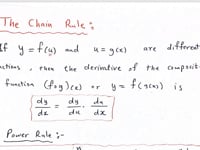 The Chain Rule :
If y = f(u) and u = g(x) are different
, then the derivative of the composit
function (f∘g)(x) or y = f(g(x)) is
dy/dx = dy/du . du/dx
Power Rule :-